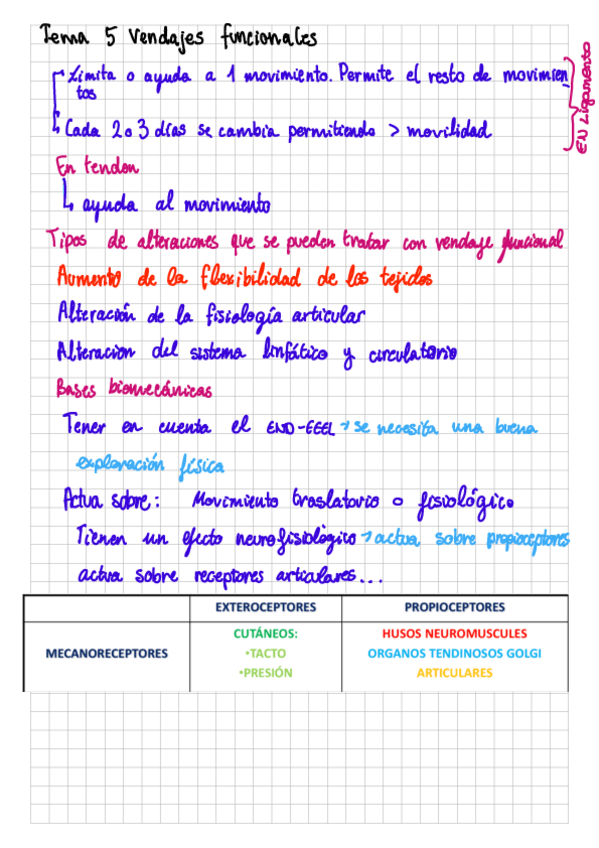 Tema 5 Vendajes funcionales
Limita o ayuda a 1 movimiento. Permite el resto de movimien
tos
Cada 2 o 3 días se cambia permitiendo > movilidad
EN Ligamento
En tendon
ayuda al movimiento
Tipos de alteraciones que se pueden tratar con vendaje funcional
Aumento de la flexibilidad de los tejidos
Alteración de la fisiología articular
Alteracion del sistema linfático y circulatorio
Bases biomecánicas
Tener en cuenta el END-FEEL → se necesita una buena
exploración física
Actua sobre: Movimiento traslatorio o fisiológico
Tienen un efecto neurofisiológico → actua sobre propioceptores
actua sobre receptores articulares...
EXTEROCEPTORES PROPIOCEPTORES
MECANORECEPTORES
CUTÁNEOS:
•TACTO
•PRESIÓN
HUSOS NEUROMUSCULES
ORGANOS TENDINOSOS GOLGI
ARTICULARES